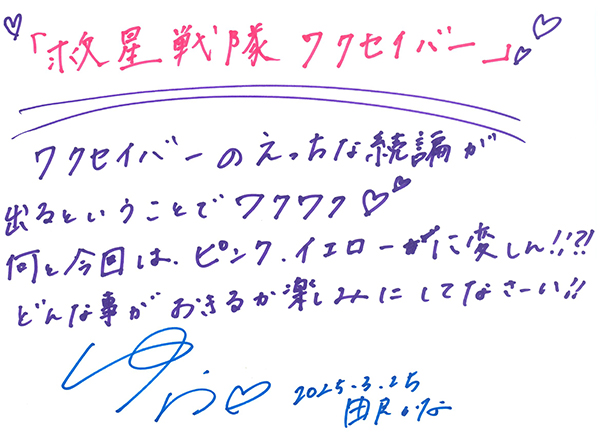 ♡「救星戦隊 ワクセイバー」♡♡
ワクセイバーのえっちな続講が
出るということでワクワク♡♡
何と今回は、ピンク、イエローに変しん!!?!
どんな事がおきるか楽しみにしてなさーい!!
ゆら♡
2025.3.25
由良かな